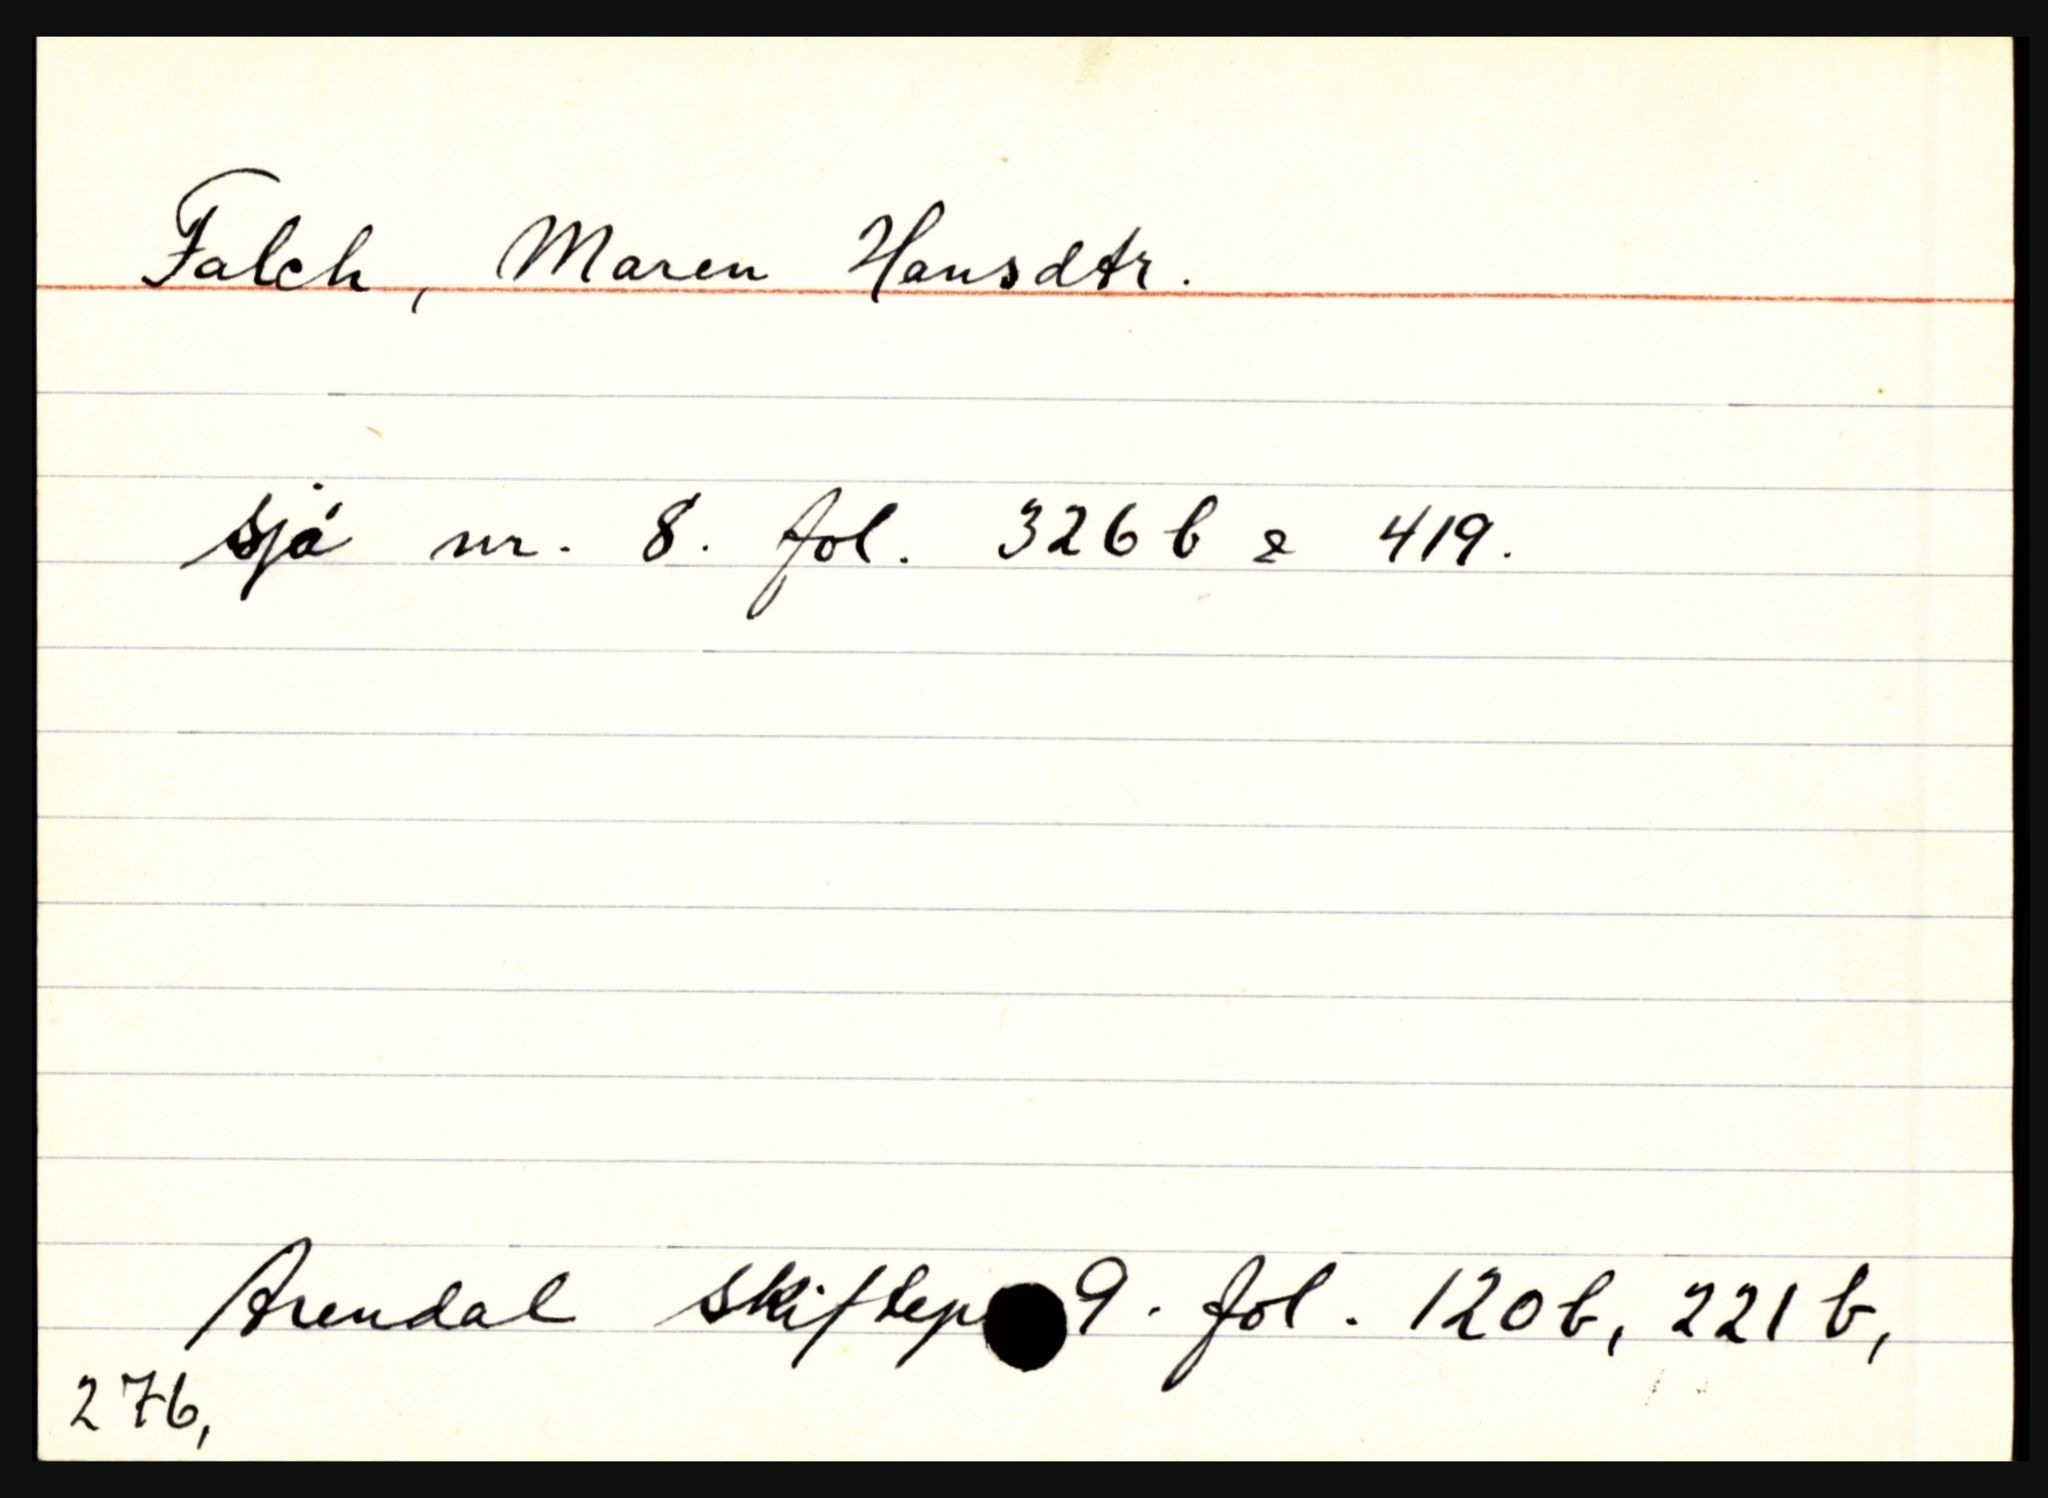 Falch, Maren Hansdtr.
sjå nr. 8. fol. 326 b & 419.
Arendal skiftep 9. fol. 120 b, 221 b,
276,